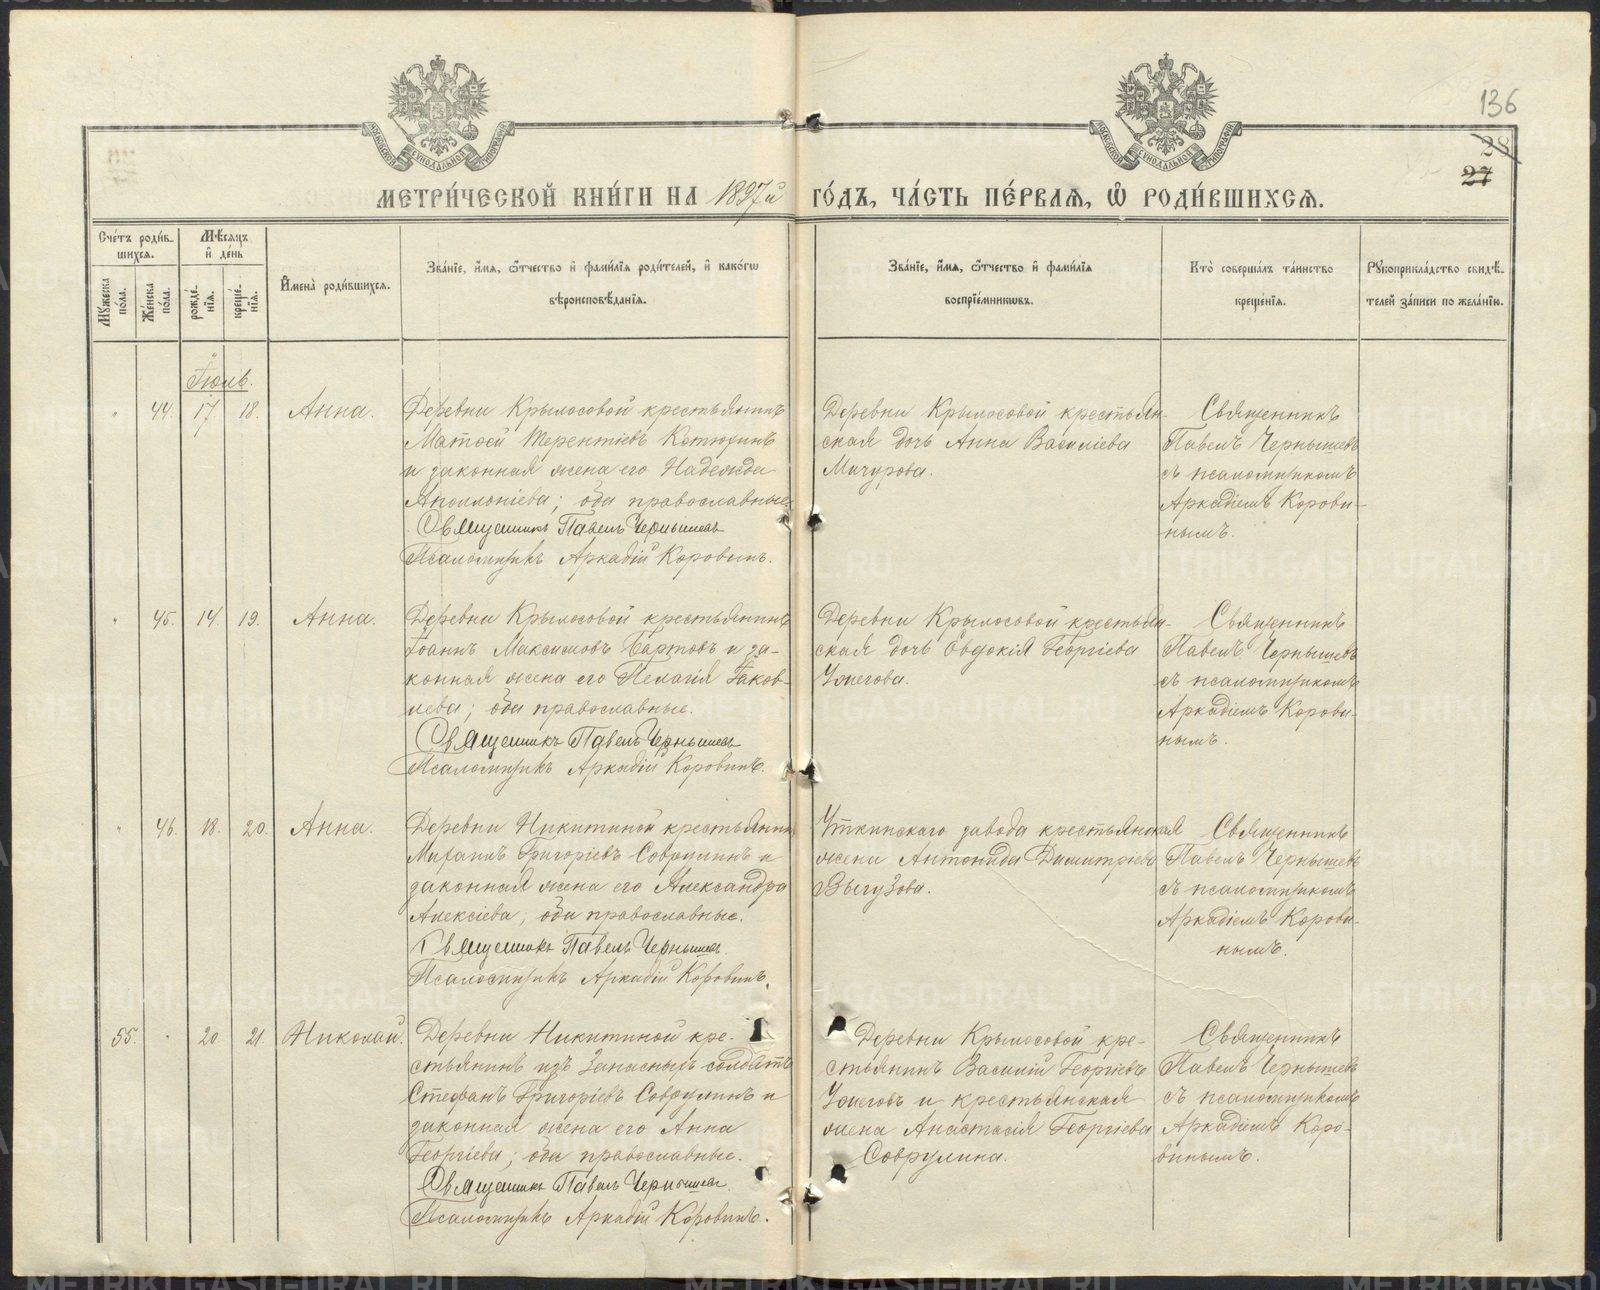 136
28
27
МЕТРИ́ЧЕСКОЙ КНИ́ГИ НА 1897й ГО́ДЪ, ЧА́СТЬ ПЕ́РВАѦ, Ѡ҆ РОДИ́ВШИХСѦ.
МОСКОВСКОЙ СѴНОДАЛЬНОЙ ТИПОГРАФІИ
МОСКОВСКОЙ СѴНОДАЛЬНОЙ ТИПОГРАФІИ
Сче́тъ роди́в-
шихсѧ.
Мꙋ́жеска по́ла.
Же́нска по́ла.
Мѣ́сѧцъ
и҆ де́нь
рожде́-
нїѧ.
креще́-
нїѧ.
И҆мена̀ роди́вшихсѧ.
Зва́нїе, и҆́мѧ, ѻ҆́тчество и҆ фами́лїѧ роди́телей, и҆ како́гѡ
вѣроисповѣ́данїѧ.
Зва́нїе, и҆́мѧ, ѻ҆́тчество и҆ фами́лїѧ
воспрїе́мникѡвъ.
Кто̀ соверша́лъ та́инство
креще́нїѧ.
Рꙋкоприкла́дство свидѣ́-
телей за́писи по жела́нїю.
Іюль.
" 44. 17 18. Анна.
Деревни Крылосовой крестьянинъ
Матѳей Терентіевъ Котюгинъ
и законная жена его Надежда
Аполлоніева; оба православные
Священникъ Павелъ Чернышевъ
Псаломщикъ Аркадій Коровинъ.
Деревни Крылосовой крестьян-
ская дочь Анна Василіева
Мичурова.
Священникъ
Павелъ Чернышевъ
съ псаломщикомъ
Аркадіемъ Корови-
нымъ.
" 45. 14. 19. Анна.
Деревни Крылосовой крестьянинъ
Іоаннъ Максимовъ Бартовъ и за-
конная жена его Пелагія Іаков-
лева; оба православные.
Священникъ Павелъ Чернышевъ
Псаломщикъ Аркадій Коровинъ.
Деревни Крылосовой крестьян-
ская дочь Евдокія Георгіева
Ужегова.
Священникъ
Павелъ Чернышевъ
съ псаломщикомъ
Аркадіемъ Корови-
нымъ.
" 46. 18. 20. Анна.
Деревни Никитиной крестьянинъ
Михаилъ Григоріевъ Соврулинъ и
законная жена его Александра
Алексіева, оба православные.
Священникъ Павелъ Чернышевъ
Псаломщикъ Аркадій Коровинъ.
Уткинскаго завода крестьянская
жена Антонида Димитріева
Выгузова.
Священникъ
Павелъ Чернышевъ
съ псаломщикомъ
Аркадіемъ Корови-
нымъ.
55. " 20 21. Николай.
Деревни Никитиной кре-
стьянинъ изъ запасныхъ солдатъ
Стефанъ Григоріевъ Соврулинъ и
законная жена его Анна
Георгіева; оба православные.
Священникъ Павелъ Чернышевъ
Псаломщикъ Аркадій Коровинъ.
Деревни Крылосовой кре-
стьянинъ Василій Георгіевъ
Ужеговъ и крестьянская
жена Анастасія Георгіева
Соврулина.
Священникъ
Павелъ Чернышевъ
съ псаломщикомъ
Аркадіемъ Коро-
винымъ.
METRIKI.GASO-URAL.RU